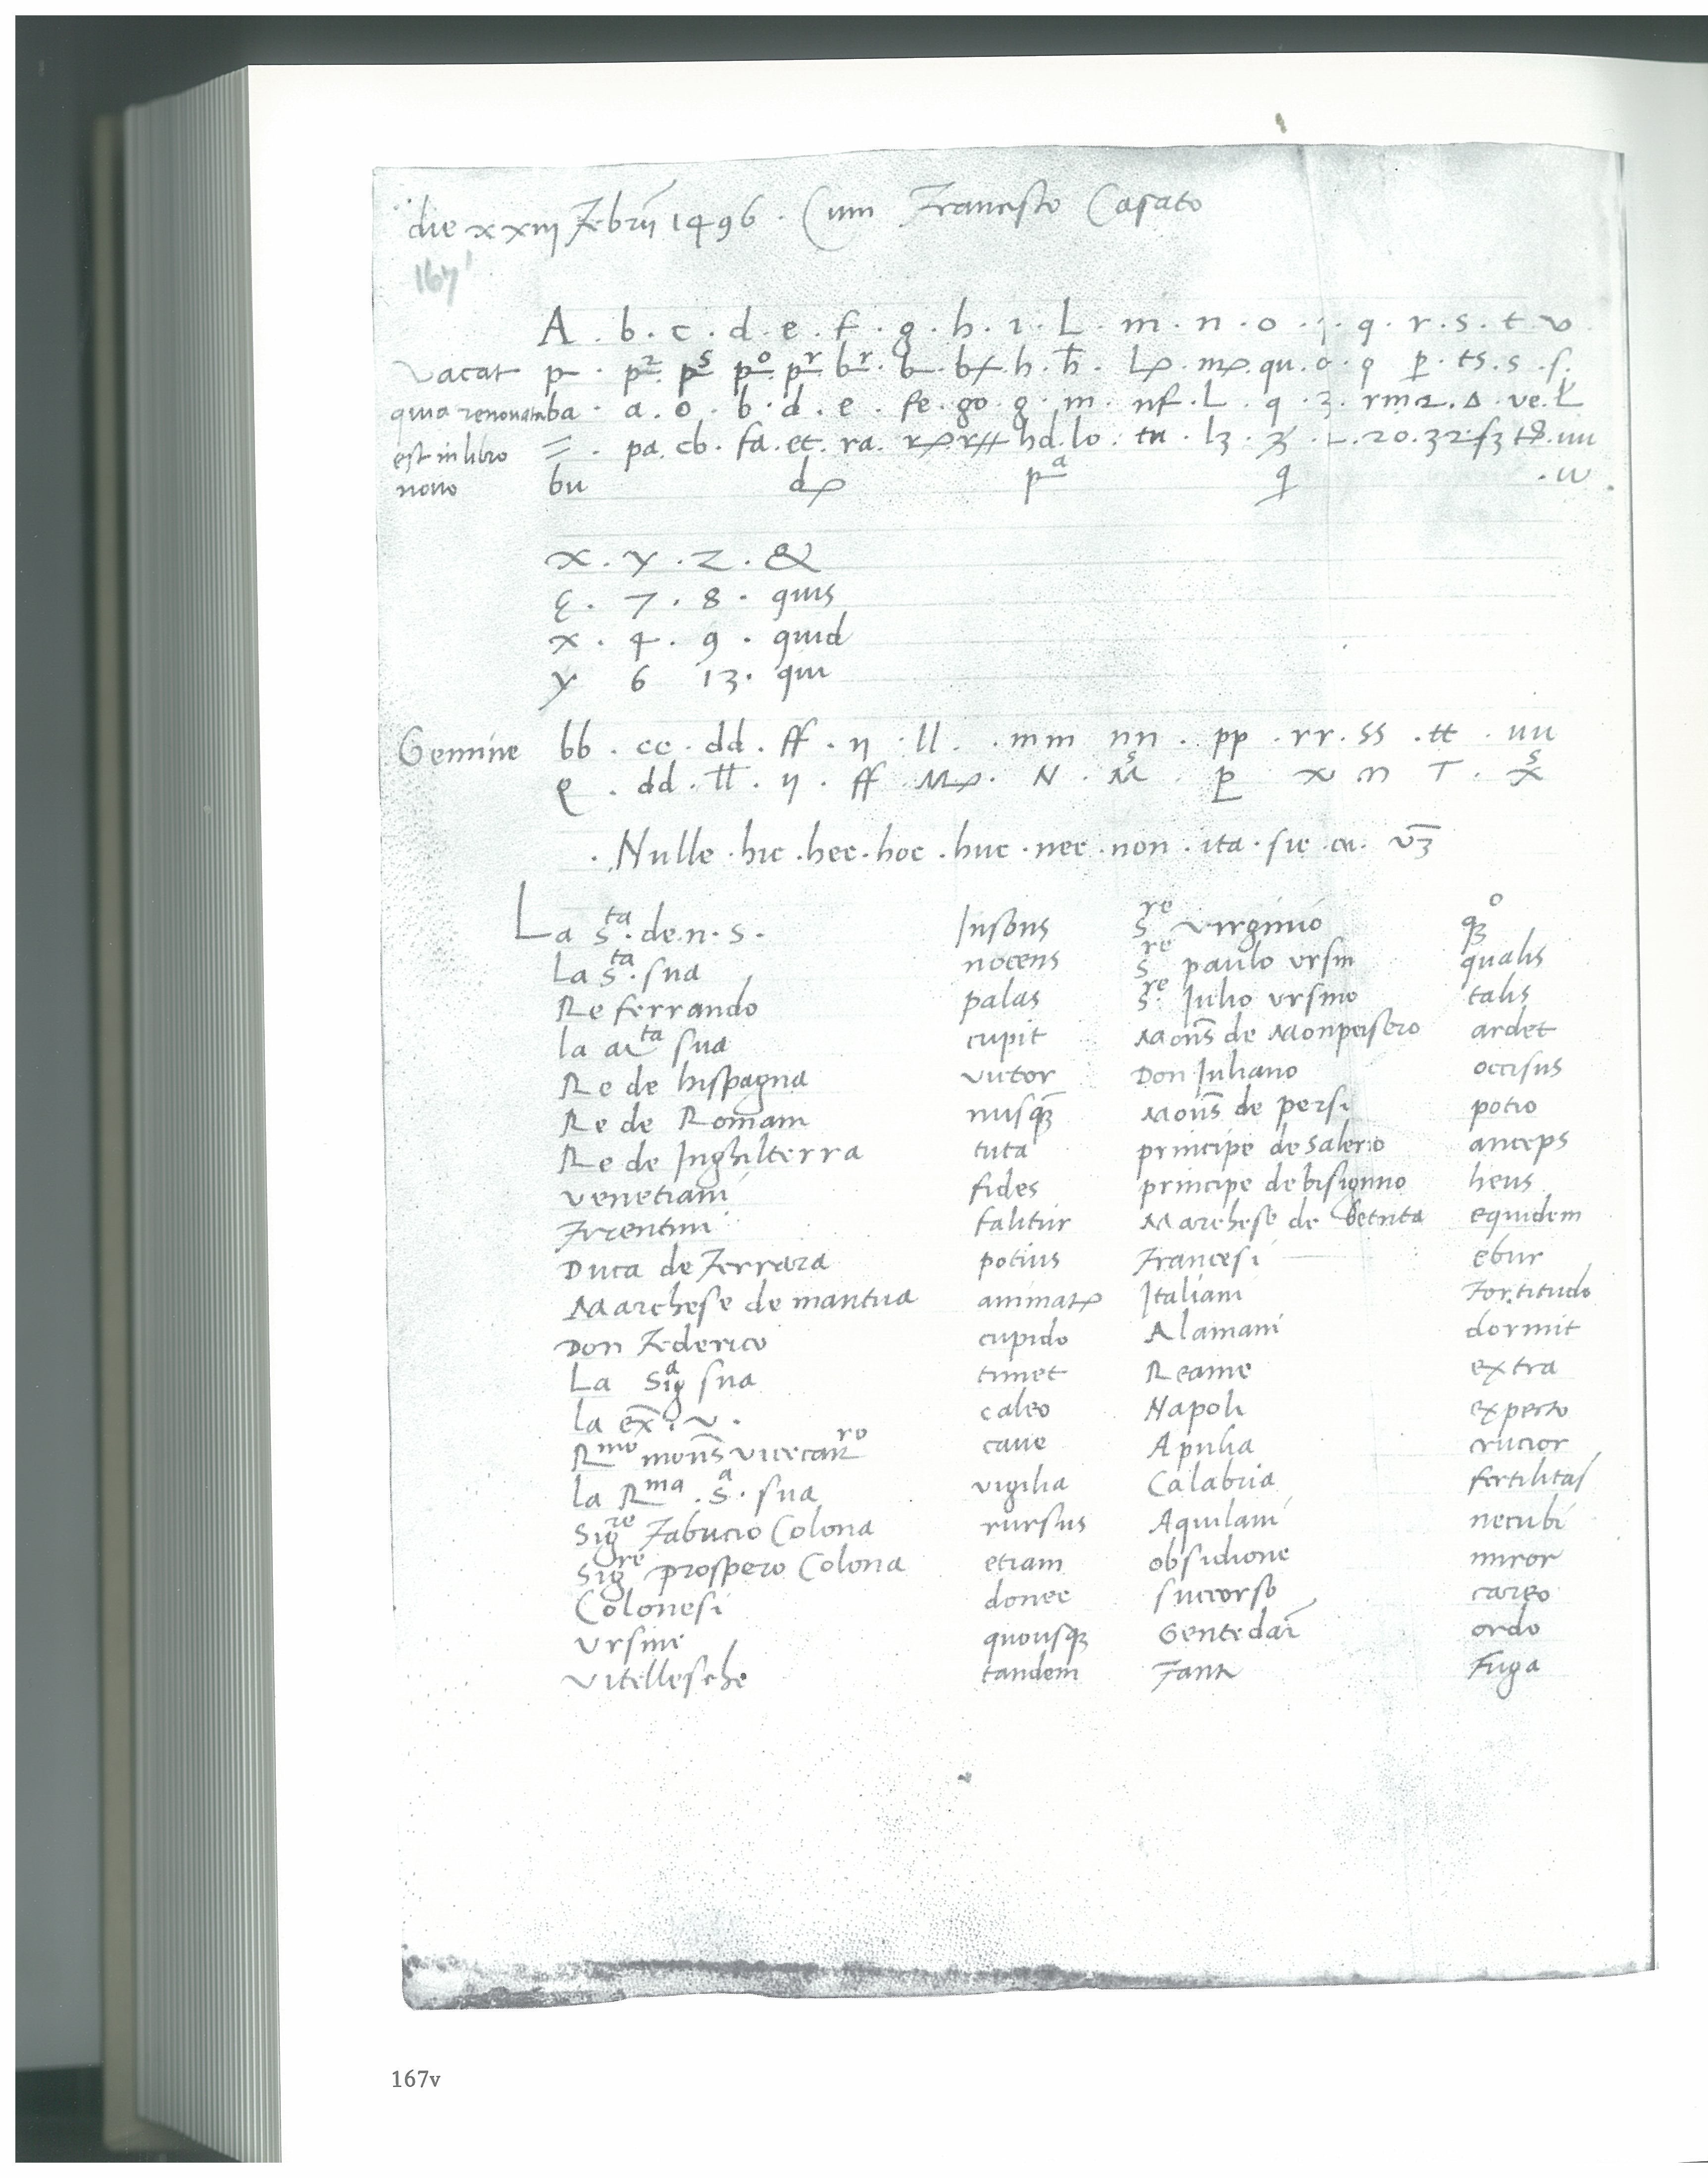 die xxiij Febrij 1496 · Cum Francisco Casato
167'
A · b · c · d · e · f · g · h · i · L · m · n · o · · q · r · s · t · v
Vacat p · p² p^s p^o p^r b^r · b · h · h · qu · o · q · ts · s · s ·
quia renovata ba · a · o · b · d · e · fe · go · g · m · nf · L · q · 3 · rm 2 · Δ · ve · L
est in libro = · pa · cb · fa · et · ra · hd · lo · tu · l3 · 20 · 32 · uu
novo bu p^a q · w
x · y · z · &
ε · 7 · 8 · quis
x · 4 · 9 · quid
y 6 13 · qui
Gemine bb · cc · dd · ff · ll · mm nn · pp · rr · ss · tt · uu
dd · ff · N · x T ·
Nulle · hic · hec · hoc · huc · nec · non · ita · sic · v3
La S^ta · de · n · s · Insons S^re virginio q3^o
La S^ta · sua nocens S^re paulo ursin qualis
Re ferrando palas S^re Julio ursino talis
la a^ta sua cupit Mons de Monpensero ardet
Re de hispagna victor Don Juliano occisus
Re de Romani nusq3 Mons de persi potio
Re de Inghilterra tuta principe de Salerio anceps
venetiani fides principe de bisignino heus
Firentini falitur Marchese de betuta equidem
Duca de Ferrara potius Francesi ebur
Marchese de mantua Italiani Fortitudo
Don Federico cupido Alamani dormit
La Sig^a sua timet Reame extra
la ex · v · caleo Napoli experto
R^mo mons vicecan^ro cave Apulia crucior
la R^ma · S^a · sua vigilia Calabria fertilitas
Sig^re Fabricio Colona rursus Aquilani necubi
Sig^re prospero Colona etiam obsidione miror
Colonesi donec succorso careo
Ursini quousq3 Gente dar ordo
Vitellesche tandem Fanti Fuga
167v